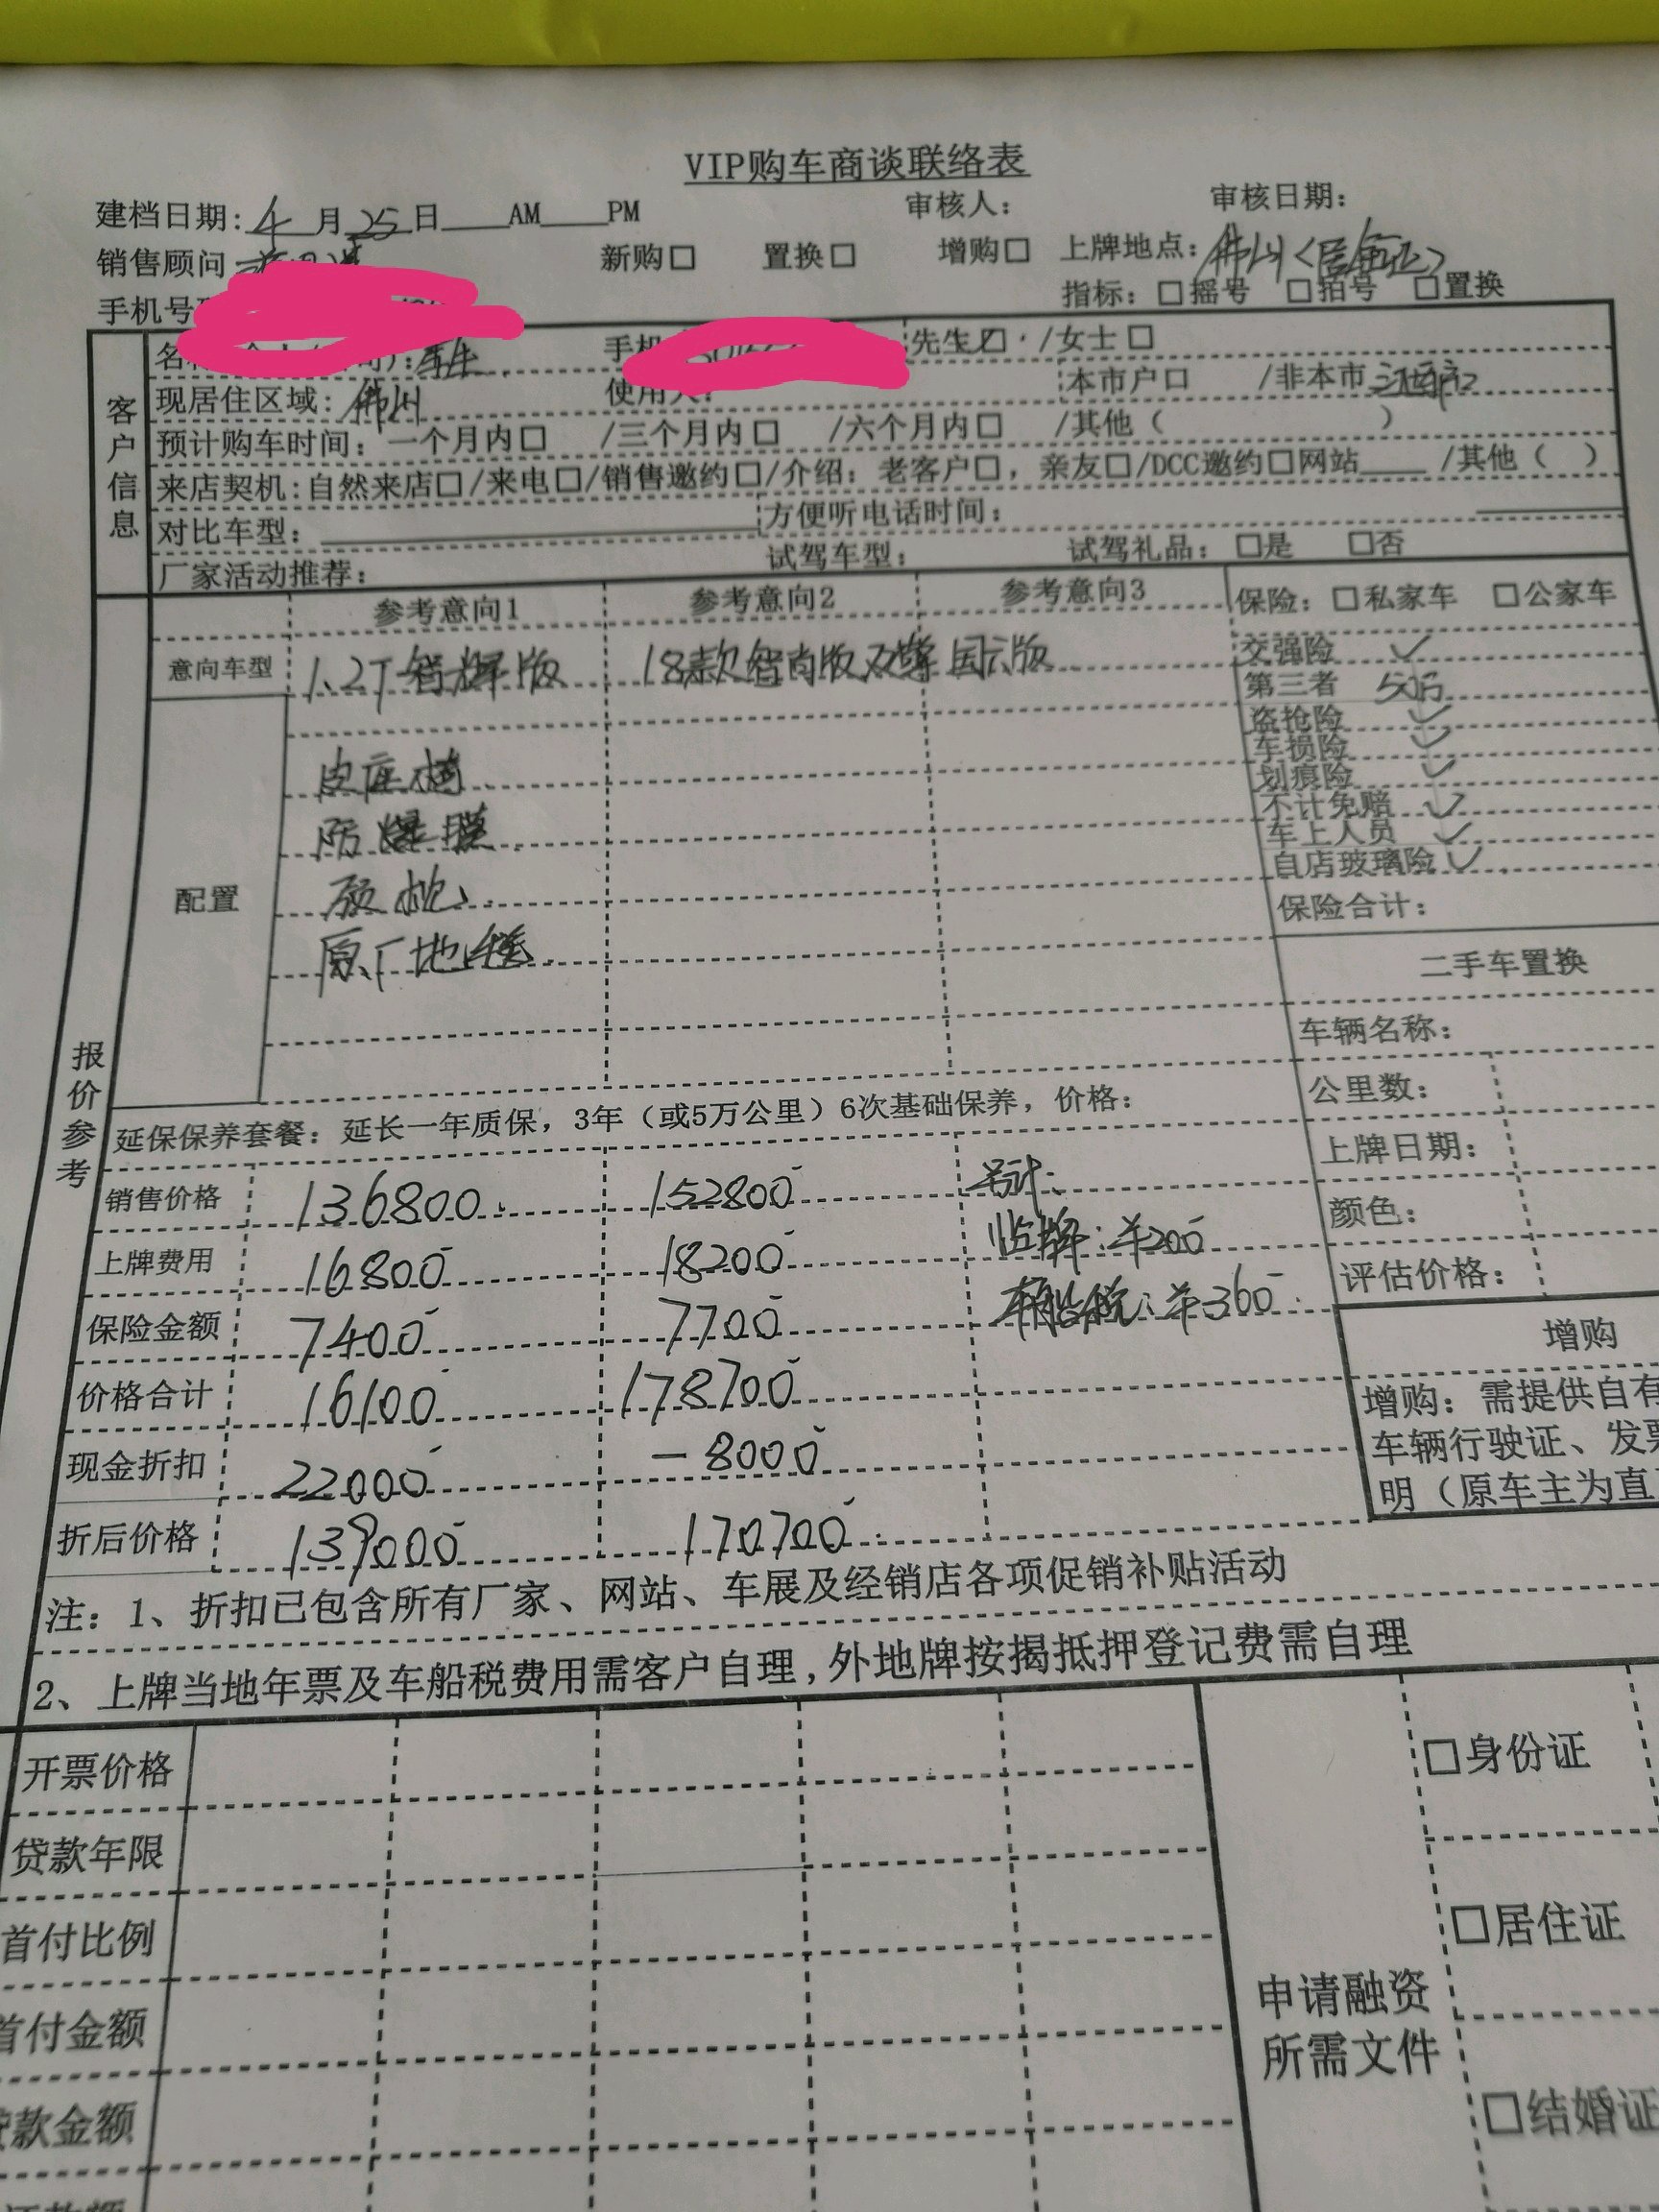 VIP购车商谈联络表
建档日期: 4 月 25 日 AM PM 审核人: 审核日期:
销售顾问 新购□ 置换□ 增购□ 上牌地点: 佛山<居住证>
手机号 指标: □摇号 □拍号 □置换
名 手机 先生☑ /女士□
客户信息
现居住区域: 佛山 使用人: 本市户口 /非本市
预计购车时间: 一个月内□ /三个月内□ /六个月内□ /其他( )
来店契机:自然来店□/来电□/销售邀约□/介绍: 老客户□, 亲友□/DCC邀约□网站 /其他( )
对比车型: 方便听电话时间:
厂家活动推荐: 试驾车型: 试驾礼品: □是 □否
参考意向1 参考意向2 参考意向3 保险: □私家车 □公家车
意向车型 1.2T 智辉版 18款智尚版 国六版
交强险 ✓
第三者 50万
盗抢险 ✓
车损险 ✓
划痕险 ✓
不计免赔 ✓
车上人员 ✓
自店玻璃险 ✓
保险合计:
配置
皮座椅
防爆膜
颈枕
原厂地毯
二手车置换
车辆名称:
公里数:
上牌日期:
颜色:
评估价格:
报价参考
延保保养套餐: 延长一年质保, 3年(或5万公里)6次基础保养, 价格:
销售价格 136800 152800 另计:
上牌费用 16800 18200 临牌: ¥200
保险金额 7400 7700 车船税: ¥360
价格合计 16100 178700
现金折扣 22000 -8000
折后价格 139000 170700
增购
增购: 需提供自有
车辆行驶证、发票
明(原车主为直
注: 1、折扣已包含所有厂家、网站、车展及经销店各项促销补贴活动
2、上牌当地年票及车船税费用需客户自理,外地牌按揭抵押登记费需自理
开票价格
贷款年限
首付比例
首付金额
贷款金额
申请融资
所需文件
□身份证
□居住证
□结婚证